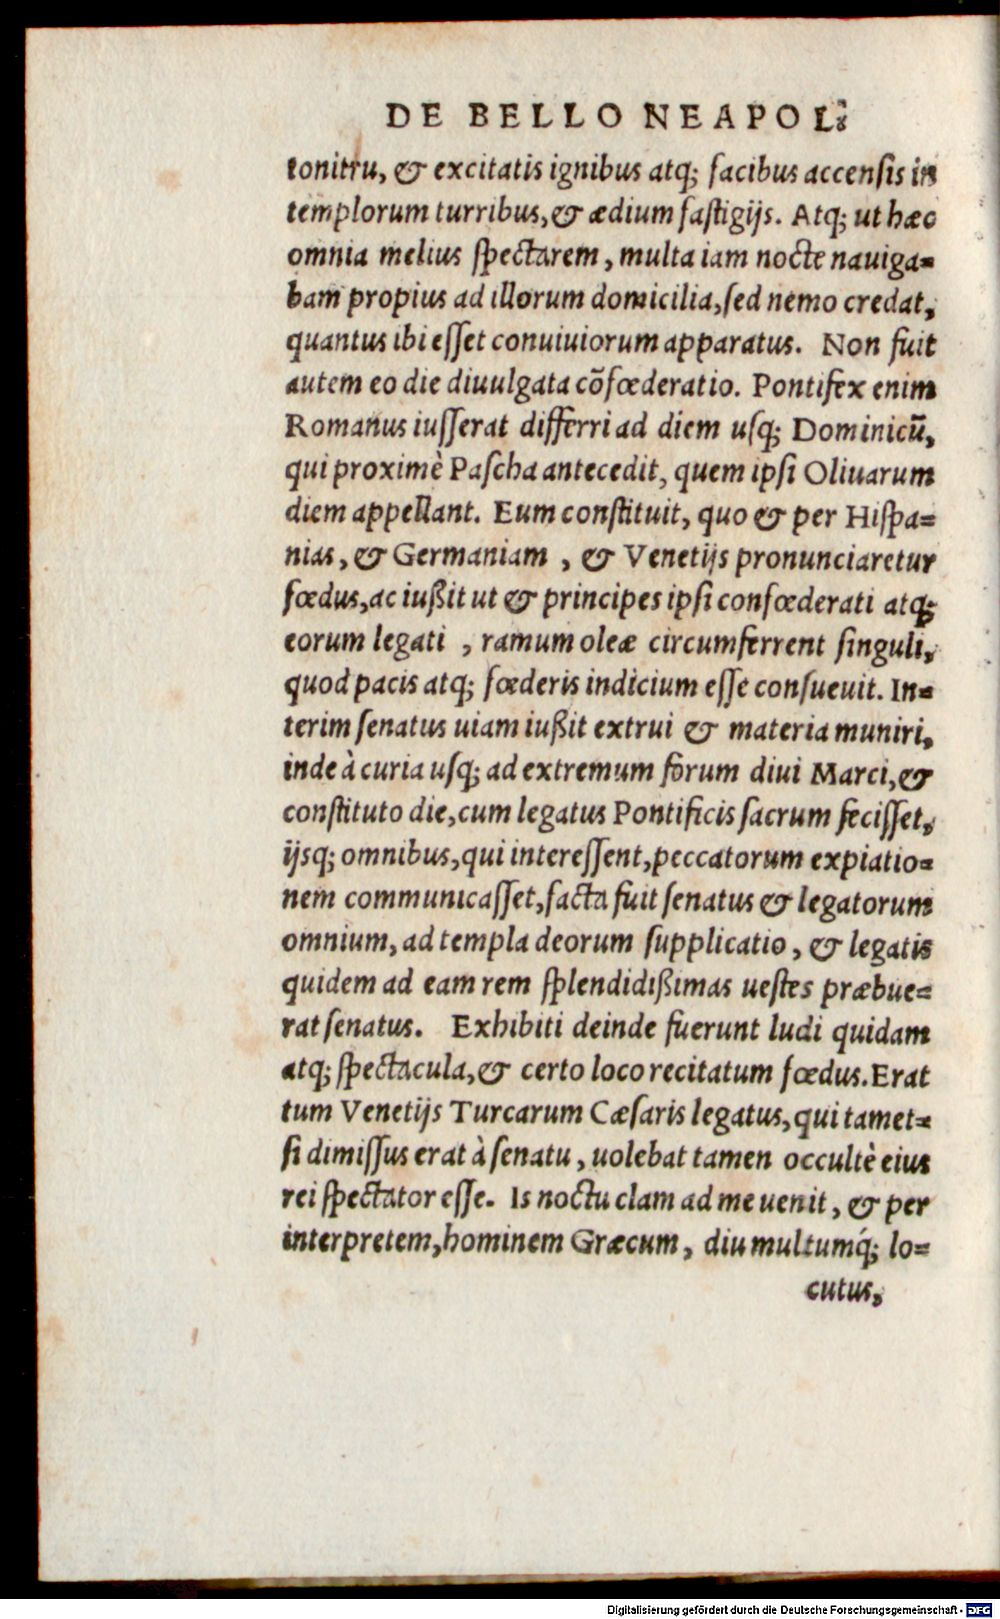 DE BELLO NEAPOL.
tonitru, & excitatis ignibus atq; facibus accensis in
templorum turribus, & ædium fastigijs. Atq; ut hæc
omnia melius spectarem, multa iam nocte nauiga=
bam propius ad illorum domicilia, sed nemo credat,
quantus ibi esset conuiuiorum apparatus. Non fuit
autem eo die diuulgata cõfœderatio. Pontifex enim
Romanus iusserat differri ad diem usq; Dominicũ,
qui proximè Pascha antecedit, quem ipsi Oliuarum
diem appellant. Eum constituit, quo & per Hispa=
nias, & Germaniam, & Venetijs pronunciaretur
fœdus, ac iußit ut & principes ipsi confœderati atq;
eorum legati, ramum oleæ circumferrent singuli,
quod pacis atq; fœderis indicium esse consueuit. In=
terim senatus uiam iußit extrui & materia muniri,
inde à curia usq; ad extremum forum diui Marci, &
constituto die, cum legatus Pontificis sacrum fecisset,
ijsq; omnibus, qui interessent, peccatorum expiatio=
nem communicasset, facta fuit senatus & legatorum
omnium, ad templa deorum supplicatio, & legatis
quidem ad eam rem splendidißimas uestes præbue=
rat senatus. Exhibiti deinde fuerunt ludi quidam
atq; spectacula, & certo loco recitatum fœdus. Erat
tum Venetijs Turcarum Cæsaris legatus, qui tamet=
si dimissus erat à senatu, uolebat tamen occultè eius
rei spectator esse. Is noctu clam ad me uenit, & per
interpretem, hominem Græcum, diu multumq́; lo=
cutus,
Digitalisierung gefördert durch die Deutsche Forschungsgemeinschaft - DFG